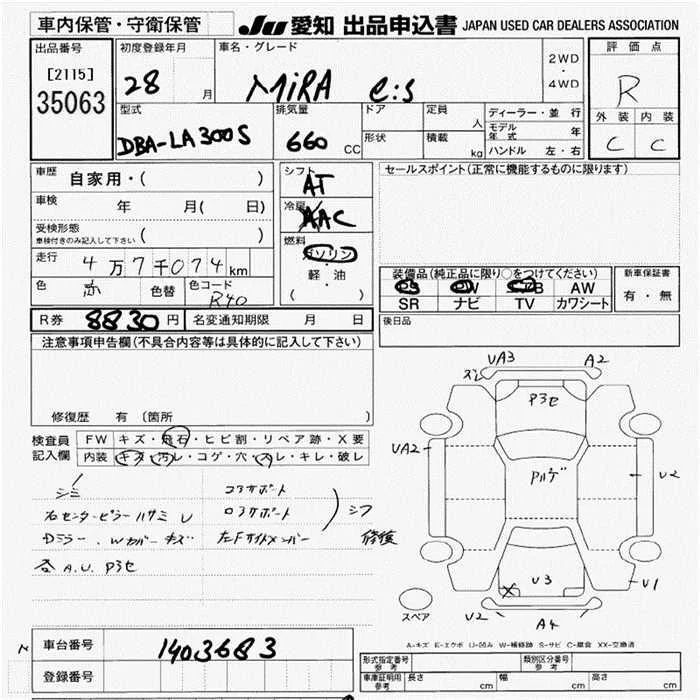 車内保管・守衛保管
JU 愛知 出品申込書 JAPAN USED CAR DEALERS ASSOCIATION
出品番号 [2115] 35063
初度登録年月 28 月
車名・グレード MiRA e:s
2WD・4WD
評価点 R
外装 内装
C C
型式 DBA-LA300S
排気量 660 CC
ドア
形状
定員 人
積載 kg
ディーラー・並 行
モデル年式 年
ハンドル 左・右
車歴 自家用・( )
車検 年 月( 日)
受検形態
車検付きのみ記入して下さい ( )
走行 4万7千074km
色 赤 色替 色コード R40
シフト AT
冷房 AAC
燃料 ガソリン・軽油
( )
セールスポイント(正常に機能するものに限ります)
装備品(純正品に限り○をつけてください)
PS PW AW
SR ナビ TV カワシート
新車保証書
有・無
R券 8830円 名変通知期限 月 日
後日品
注意事項申告欄(不具合内容等は具体的に記入して下さい)
修復歴 有 〔箇所 〕
検査員記入欄
FW キズ・飛石・ヒビ割・リペア跡・X要
内装 キズ・汚レ・コゲ・穴・スレ・キレ・破レ
シミ
右センターピラー ハサミ U
Dミラー、Wカバー キズ
各 A.U. P3セ
コアサポート
ロアサポート
左Fサイドメンバー
シフ
修復
UA3 A2
ズレ
P3セ
UA2
U2
U3
U1
U2 A4
スペア
A-キズ E-エクボ U-凹み W-補修跡 S-サビ C-腐食 XX-交換済
車台番号 1403683
登録番号
形式指定番号 参考
類別区分番号 参考
車庫証明用 参考 長さ cm 幅 cm 高さ cm